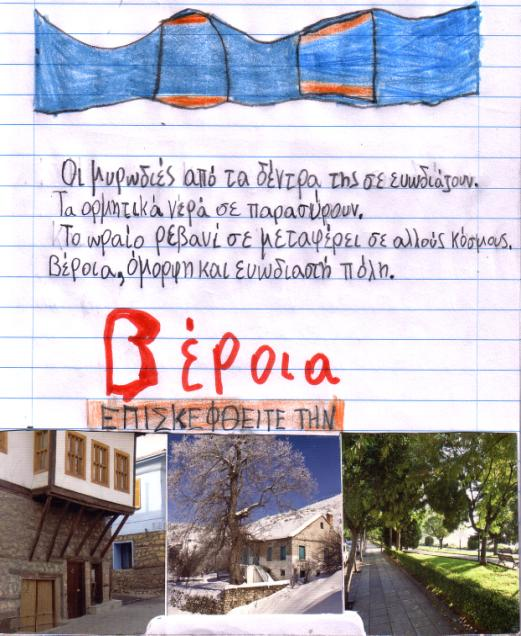 Οι μυρωδιές από τα δέντρα της σε ευωδιάζουν.
Τα ορμητικά νερά σε παρασύρουν.
Το ωραίο ρεβανί σε μεταφέρει σε αλλούς κόσμους.
Βέροια, όμορφη και ευωδιαστή πόλη.
Βέροια
ΕΠΙΣΚΕΦΘΕΙΤΕ ΤΗΝ